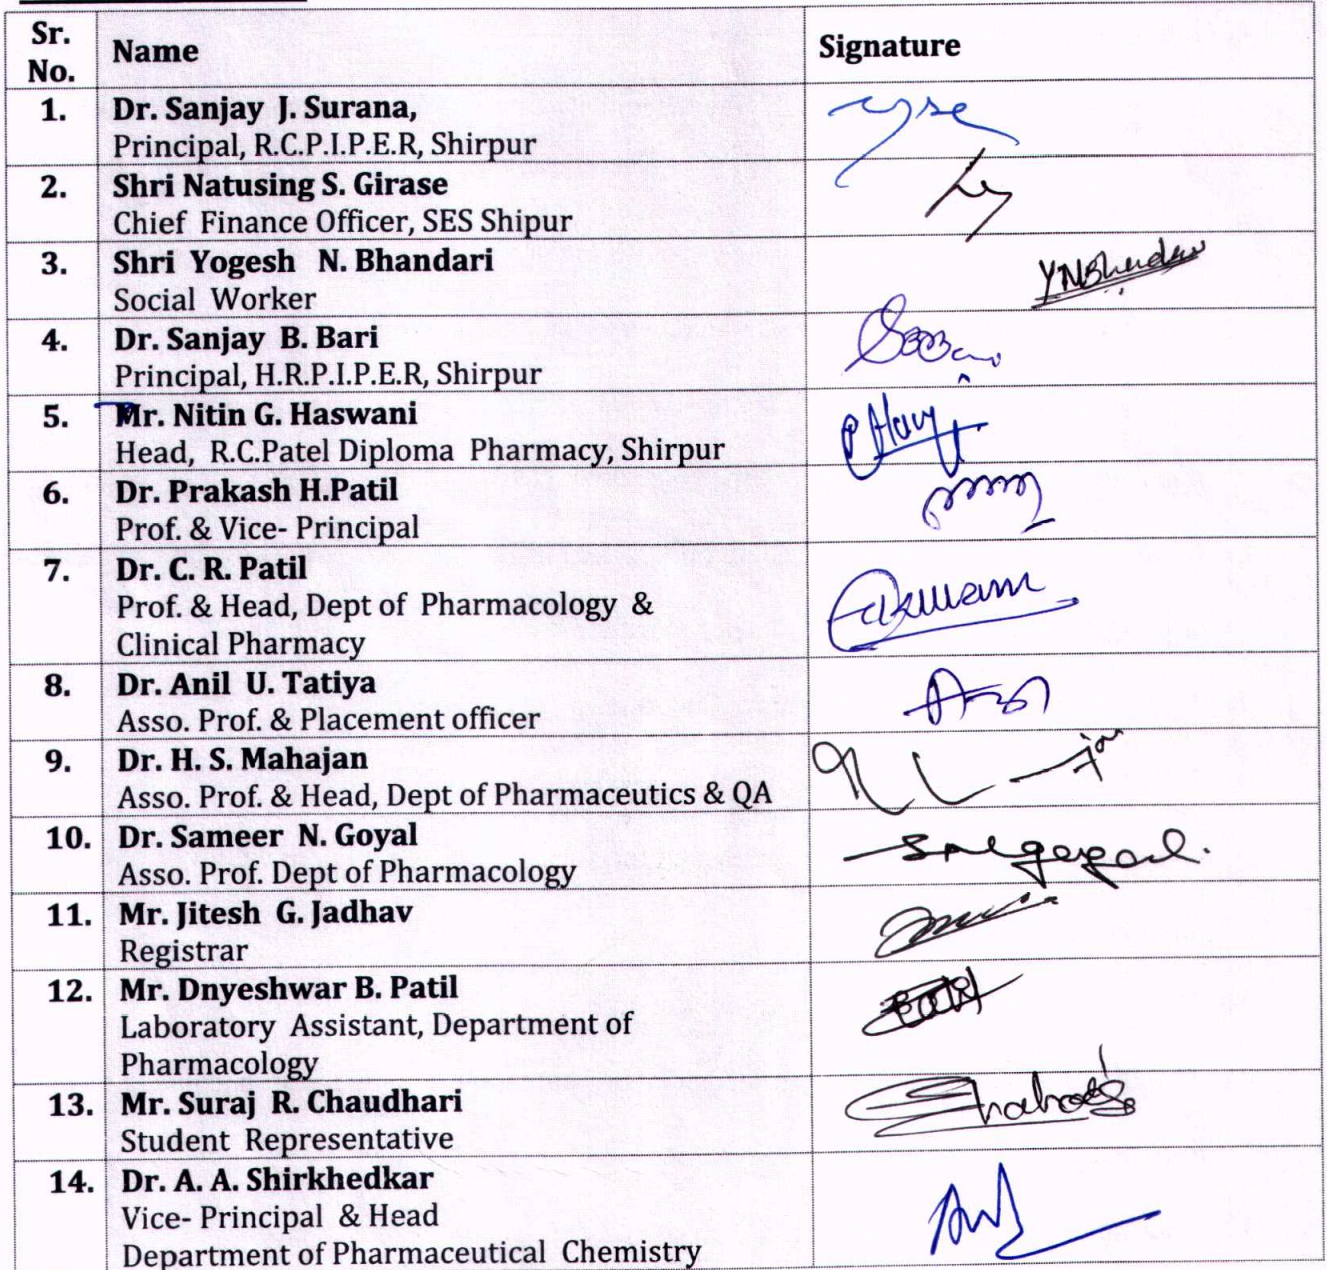 Sr. No. Name Signature
1. Dr. Sanjay J. Surana,
Principal, R.C.P.I.P.E.R, Shirpur
2. Shri Natusing S. Girase
Chief Finance Officer, SES Shipur
3. Shri Yogesh N. Bhandari
Social Worker
YNBhandari
4. Dr. Sanjay B. Bari
Principal, H.R.P.I.P.E.R, Shirpur
5. Mr. Nitin G. Haswani
Head, R.C.Patel Diploma Pharmacy, Shirpur
6. Dr. Prakash H.Patil
Prof. & Vice- Principal
7. Dr. C. R. Patil
Prof. & Head, Dept of Pharmacology &
Clinical Pharmacy
8. Dr. Anil U. Tatiya
Asso. Prof. & Placement officer
9. Dr. H. S. Mahajan
Asso. Prof. & Head, Dept of Pharmaceutics & QA
10. Dr. Sameer N. Goyal
Asso. Prof. Dept of Pharmacology
11. Mr. Jitesh G. Jadhav
Registrar
12. Mr. Dnyeshwar B. Patil
Laboratory Assistant, Department of
Pharmacology
13. Mr. Suraj R. Chaudhari
Student Representative
14. Dr. A. A. Shirkhedkar
Vice- Principal & Head
Department of Pharmaceutical Chemistry